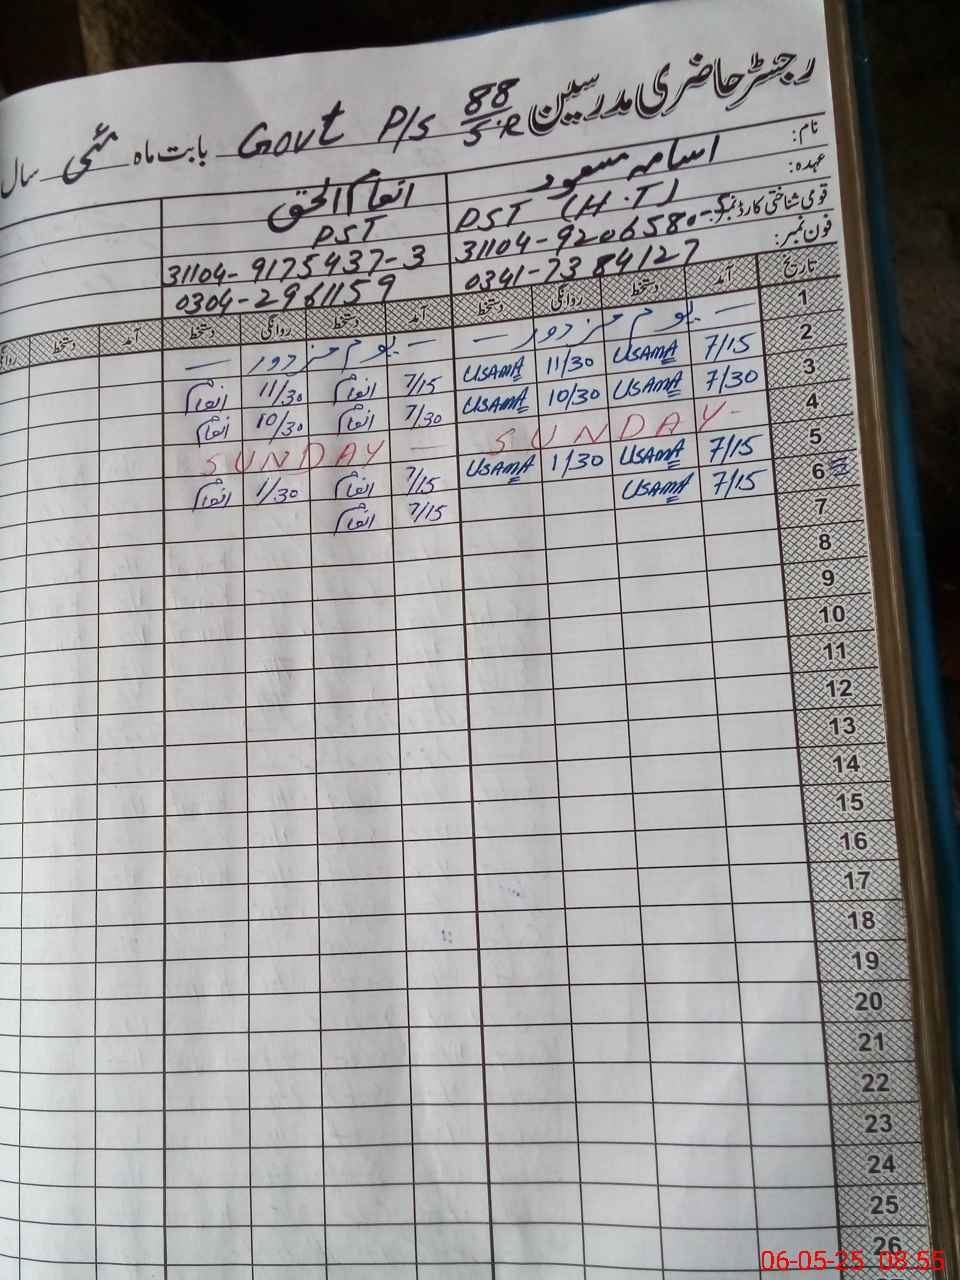 رجسٹر حاضری مدرسین Govt P/s 88/5.R بابت ماہ مئی سال
نام: اسامہ مسعود انعام الحق
عہدہ: PST (H.T) PST
قومی شناختی کارڈ نمبر: 31104-9206580-5 31104-9175437-3
فون نمبر: 0341-7384127 0304-2961159
تاریخ آمد دستخط روانگی دستخط آمد دستخط روانگی دستخط آمد دستخط روانگی
1 — یوم مزدور — — یوم مزدور —
2 7/15 USAMA 11/30 USAMA 7/15 انعام 11/30 انعام
3 7/30 USAMA 10/30 USAMA 7/30 انعام 10/30 انعام
4 SUNDAY - SUNDAY —
5 7/15 USAMA 1/30 USAMA 7/15 انعام 1/30 انعام
6 7/15 USAMA 7/15 انعام
7
8
9
10
11
12
13
14
15
16
17
18
19
20
21
22
23
24
25
26
06-05-25 08:55